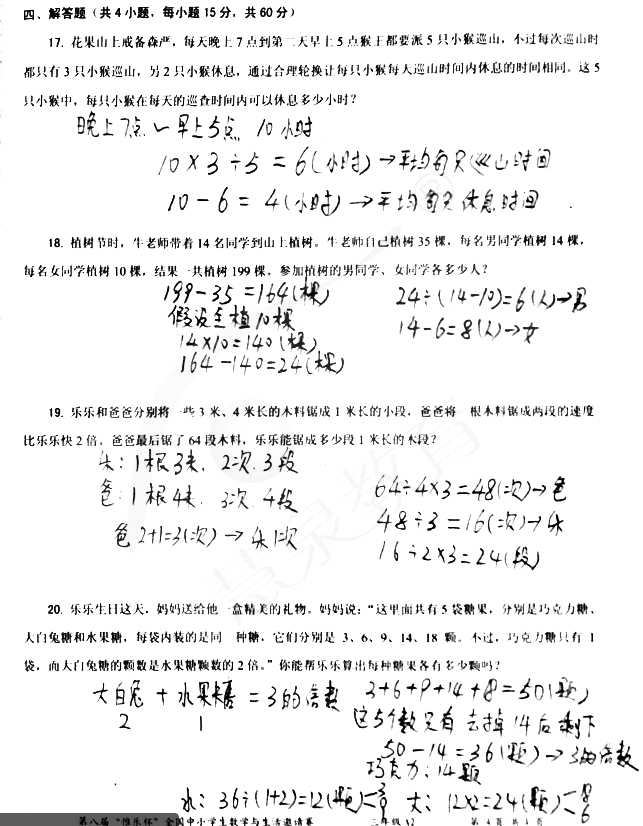 四、解答题（共4小题，每小题15分，共60分）
17. 花果山上戒备森严，每天晚上7点到第二天早上5点猴王都要派5只小猴巡山，不过每次巡山时
都只有3只小猴巡山，另2只小猴休息，通过合理轮换让每只小猴每天巡山时间内休息的时间相同。这5
只小猴中，每只小猴在每天的巡查时间内可以休息多少小时？
晚上7点~早上5点 10小时
10×3÷5=6(小时)→平均每只巡山时间
10-6=4(小时)→平均每只休息时间
18. 植树节时，牛老师带着14名同学到山上植树。牛老师自己植树35棵，每名男同学植树14棵，
每名女同学植树10棵，结果一共植树199棵。参加植树的男同学、女同学各多少人？
199-35=164(棵) 24÷(14-10)=6(人)→男
假设全植10棵 14-6=8(人)→女
14×10=140(棵)
164-140=24(棵)
19. 乐乐和爸爸分别将一些3米、4米长的木料锯成1米长的小段，爸爸将一根木料锯成两段的速度
比乐乐快2倍。爸爸最后锯了64段木料，乐乐能锯成多少段1米长的木段？
乐：1根3米. 2次. 3段
爸：1根4米. 3次. 4段 64÷4×3=48(次)→爸
爸 2+1=3(次)→乐1次 48÷3=16(次)→乐
16÷2×3=24(段)
20. 乐乐生日这天，妈妈送给他一盒精美的礼物。妈妈说：“这里面共有5袋糖果，分别是巧克力糖、
大白兔糖和水果糖，每袋内装的是同一种糖，它们分别是 3、6、9、14、18 颗。不过，巧克力糖只有 1
袋，而大白兔糖的颗数是水果糖颗数的2倍。”你能帮乐乐算出每种糖果各有多少颗吗？
大白兔 + 水果糖 = 3的倍数 3+6+9+14+18=50(颗)
2 1 这5个数只有去掉14后剩下
50-14=36(颗)→3的倍数
巧克力：14颗
水：36÷(1+2)=12(颗) 大：12×2=24(颗)
第八届“惟乐杯”全国中小学生数学与生活邀请赛 三年级 第4页共4页